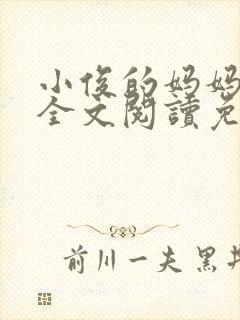 小俊的妈妈
全文閱讀免
前川一夫 黑